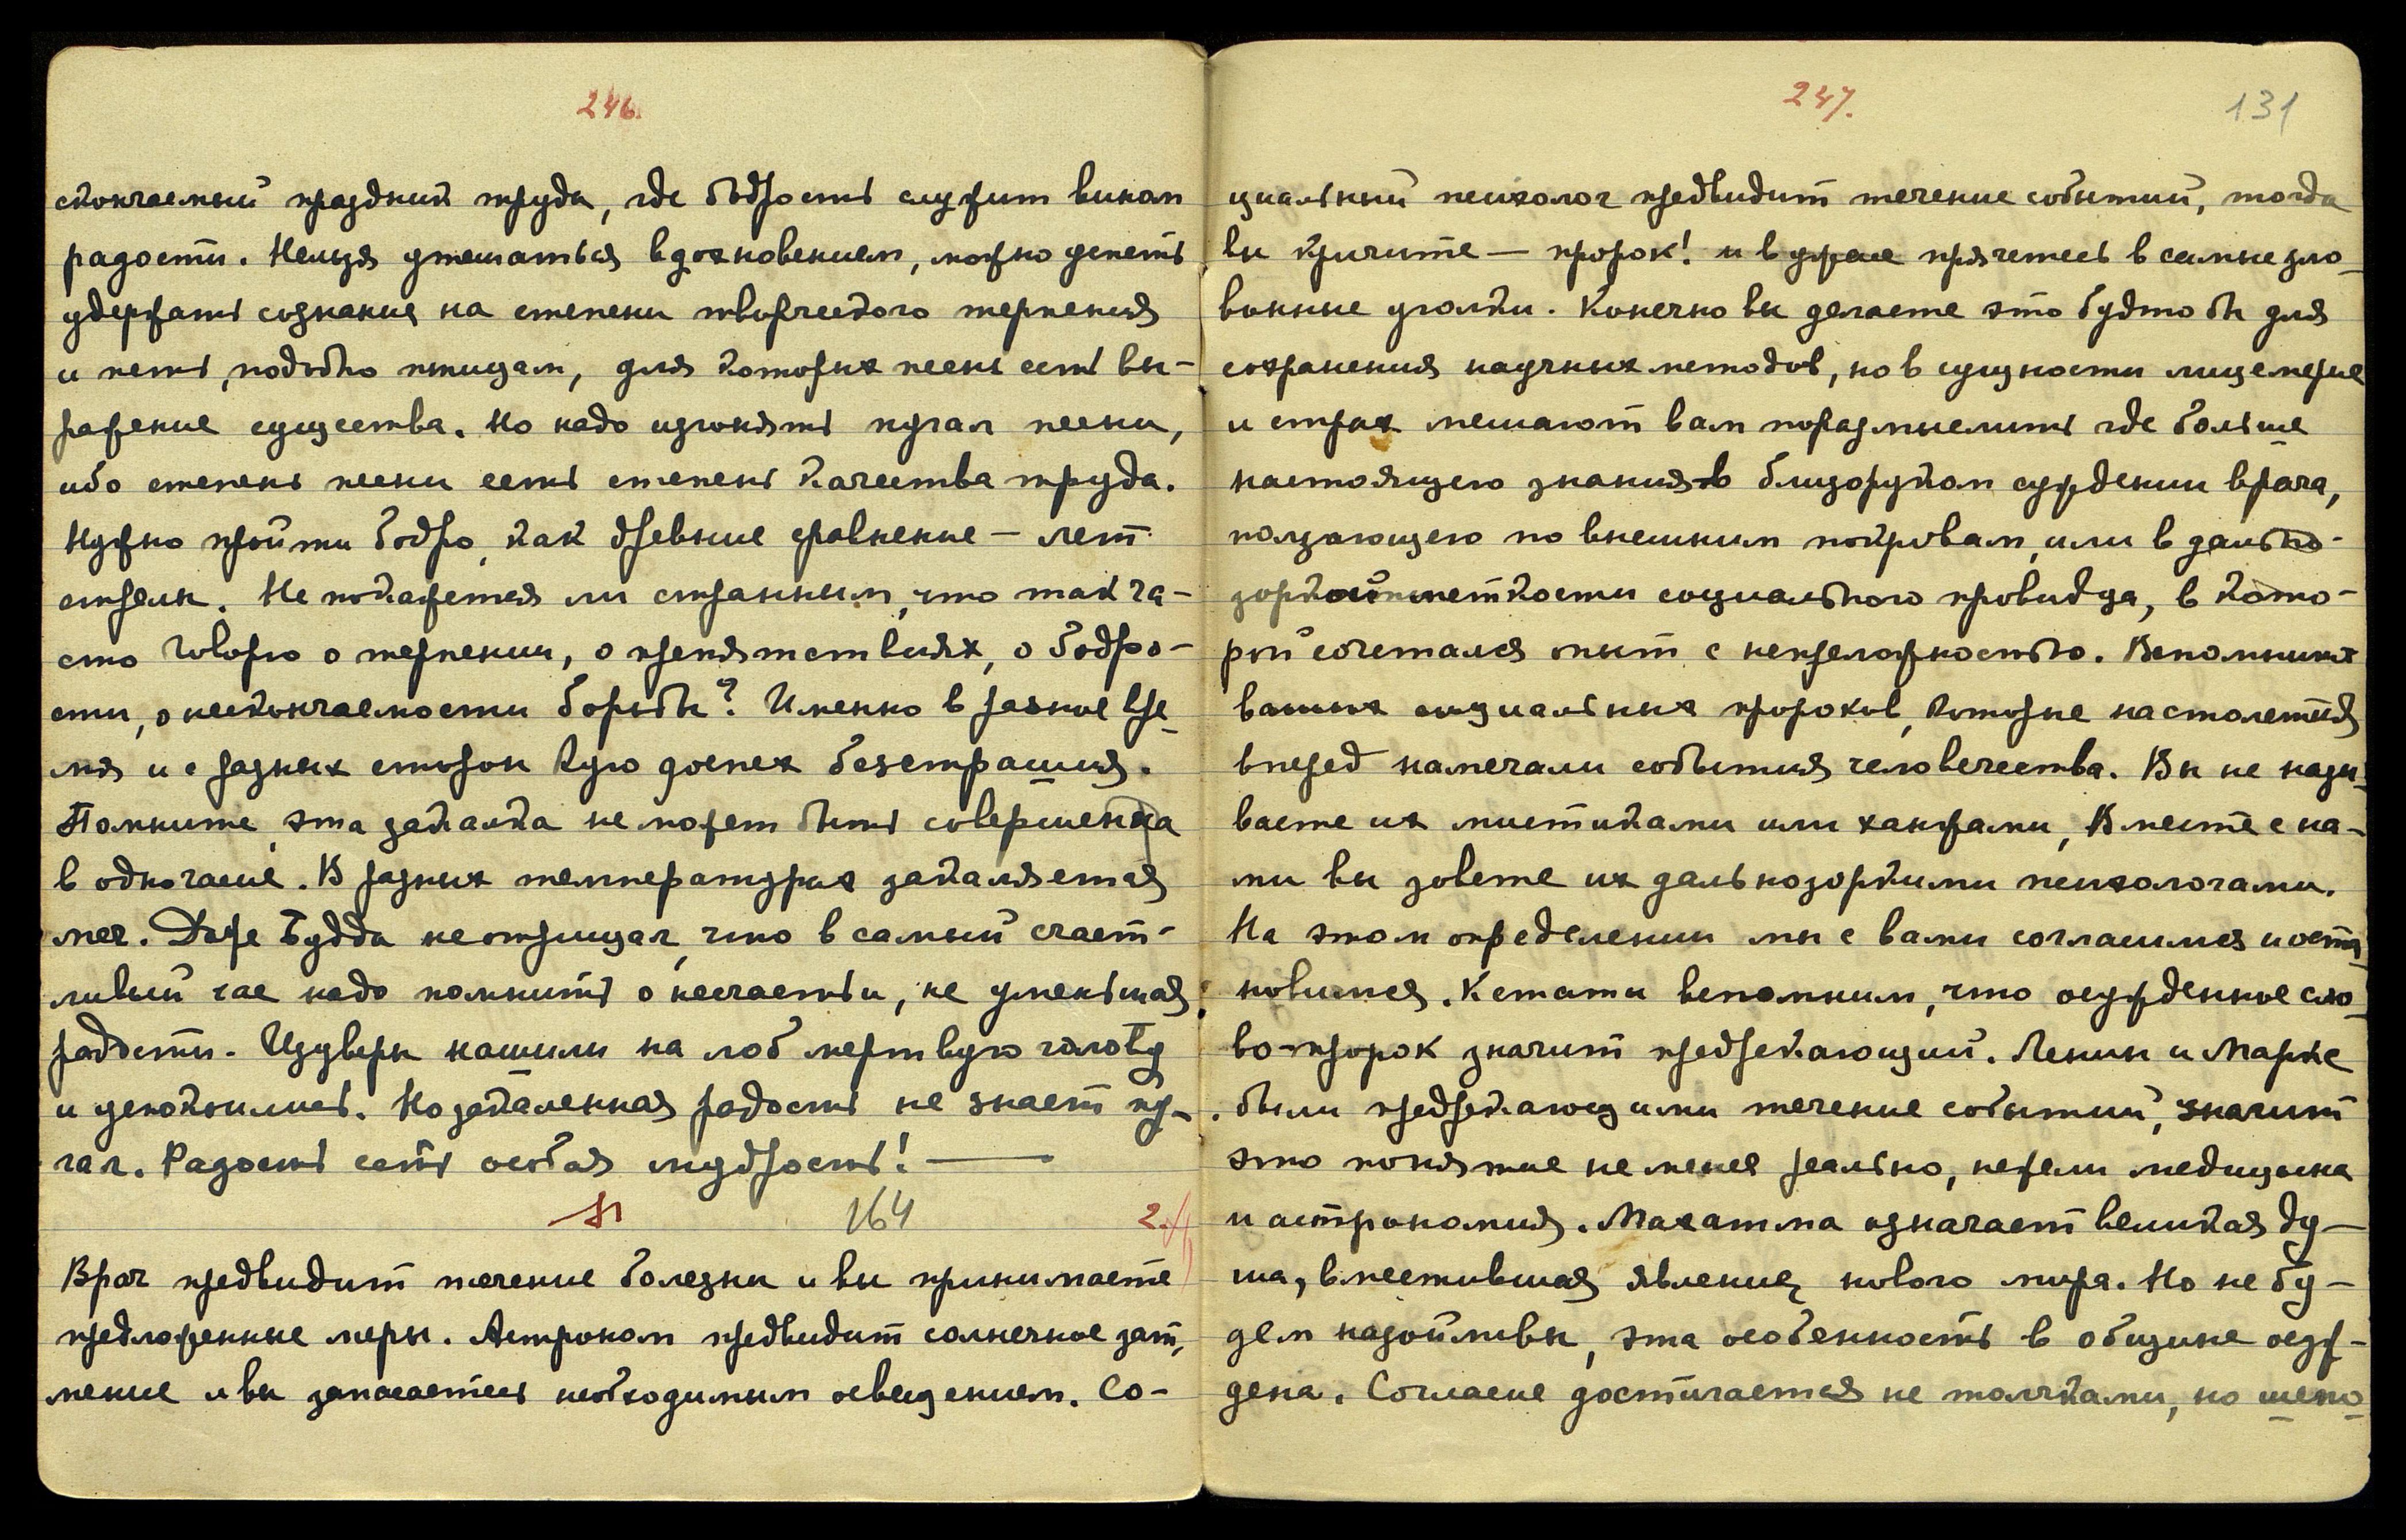 246.
скончаемый праздник труда, где бодрость служит вином
радости. Нельзя утешаться вдохновением, можно уметь
удержать сознание на степени творческого терпения
и петь, подобно птицам, для которых песнь есть вы-
ражение существа. Но надо изгонять пугал песни,
ибо степень песни есть степень качества труда.
Нужно пройти бодро, как древние сравнение — лет
стрелы. Не покажется ли странным, что так ча-
сто говорю о терпении, о препятствиях, о бодро-
сти, о нескончаемости борьбы? Именно в разное вре-
мя и с разных сторон кую доспех безстрашия.
Помните, эта закалка не может быть совершенна
в одночасие. В разных температурах закаляется
меч. Даже Будда не отрицал, что в самый счаст-
ливый час надо помнить о несчастьи, не уменьшая
радости. Изуверы нашили на лоб мертвую голову
и успокоились. Но закаленная радость не знает пу-
гал. Радость есть особая мудрость! —
164
2.
Врач предвидит течение болезни и вы принимаете
предложенные меры. Астроном предвидит солнечное зат-
мение и вы запасаетесь необходимым освещением. Со-
247.
131
циальный психолог предвидит течение событий, тогда
вы кричите — пророк! и в ужасе прячетесь в самые зло-
вонные уголки. Конечно вы делаете это будто бы для
сохранения научных методов, но в сущности лицемерие
и страх мешают вам поразмыслить где больше
настоящего знания-в близоруком суждении врача,
ползающего по внешним покровам, или в дально-
зоркой меткости социального провидца, в кото-
рой сочетался опыт с непреложностью. Вспомните
ваших социальных пророков, которые на столетия
вперед намечали события человечества. Вы не назы-
ваете их мистиками или ханжами, Вместе с на-
ми вы зовете их дальнозоркими психологами.
На этом определении мы с вами согласимся и оста-
новимся. Кстати вспомним, что осужденное сло-
во-пророк значит предрекающий. Ленин и Маркс
были предрекающими течение событий, значит
это понятие не менее реально, нежели медицина
и астрономия. Махатма означает великая ду-
ша, вместившая явление нового мира. Но не бу-
дем назойливы, эта особенность в общине осуж-
дена. Согласие достигается не толчками, но щепо-